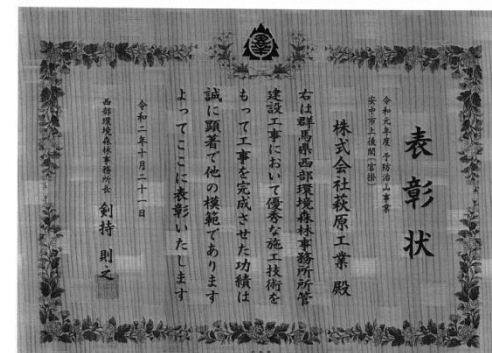 表彰状
令和元年度 予防治山事業
安中市上後閑(宮掛)
株式会社萩原工業 殿
右は群馬県西部環境森林事務所所管
建設工事において優秀な施工技術を
もって工事を完成させた功績は
誠に顕著で他の模範であります
よってここに表彰いたします
令和二年十月二十一日
西部環境森林事務所長 剣持 則之